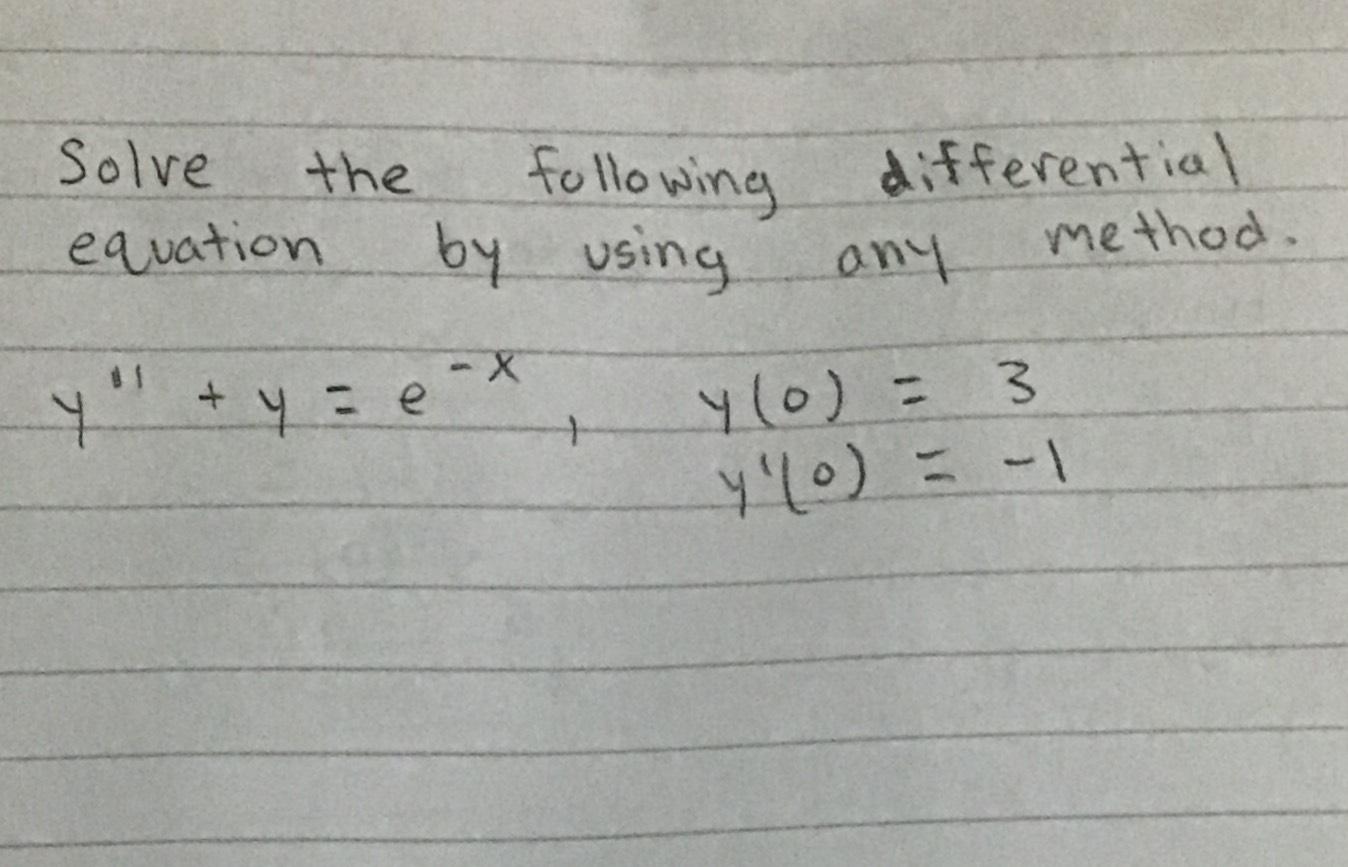 Solve the following differential
equation by using any method.
y'' + y = e^{-x}, y(0) = 3
y'(0) = -1